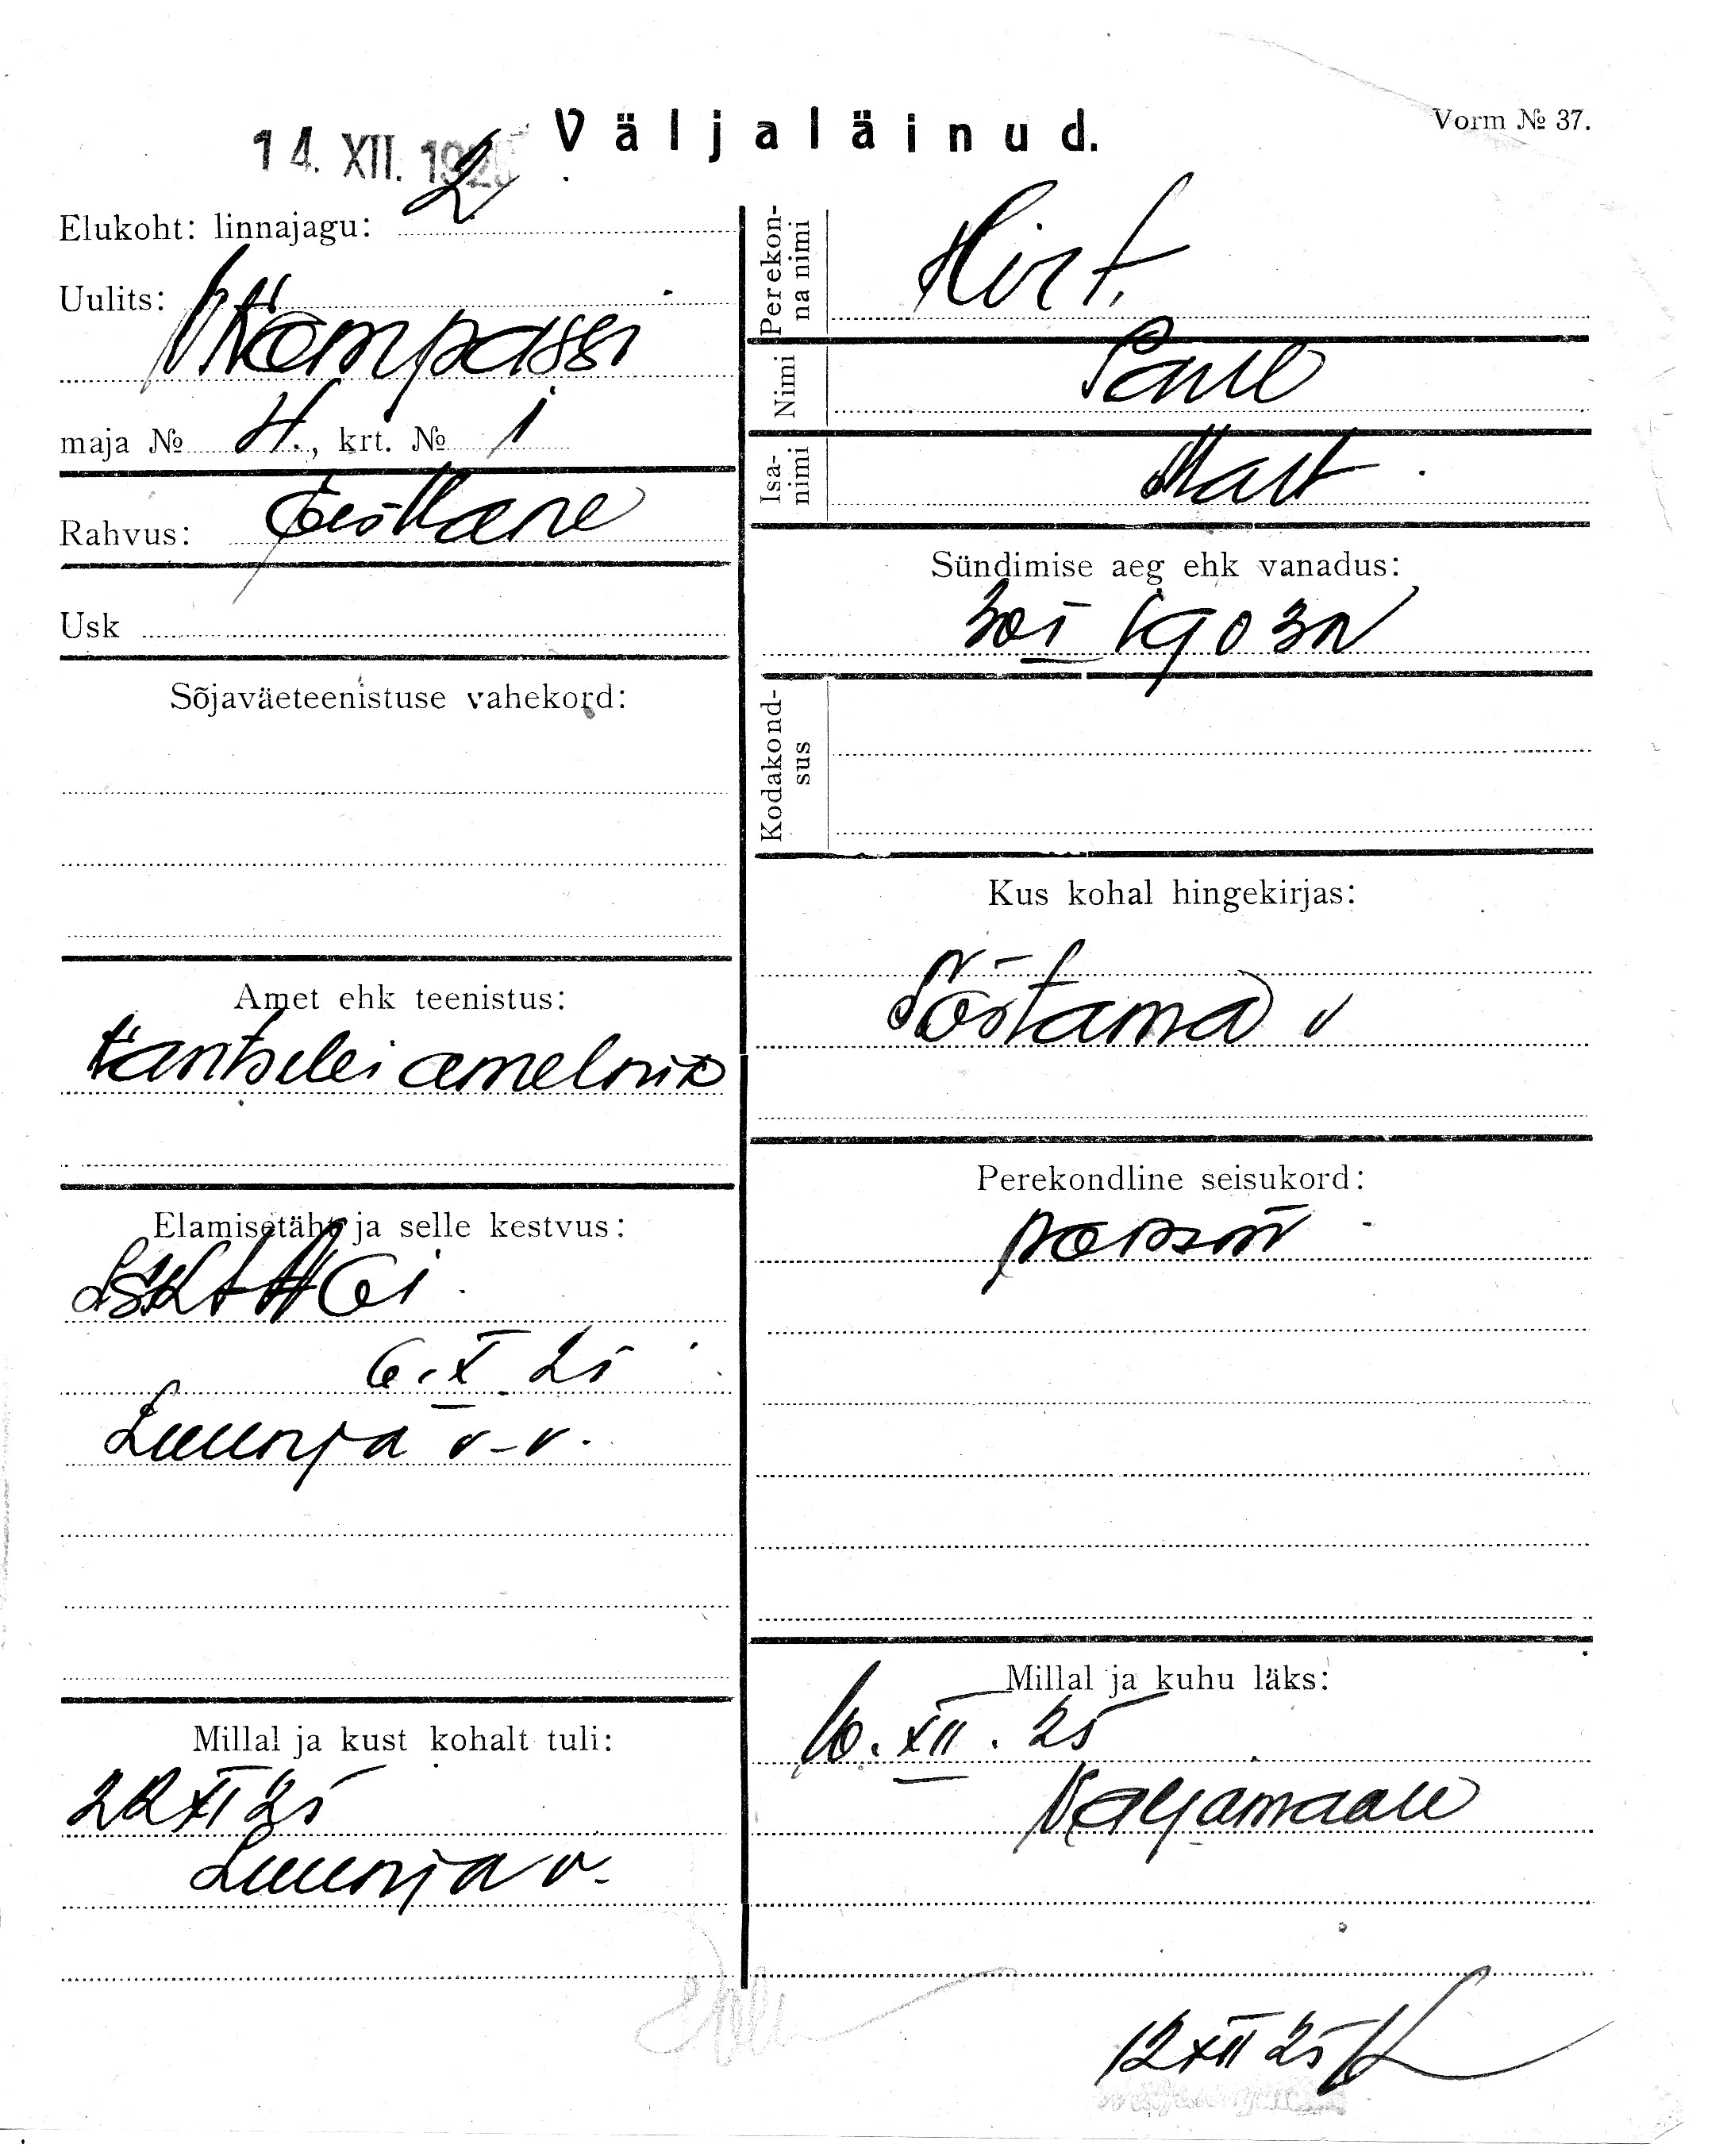 Väljaläinud.
Vorm № 37.
14. XII. 1925
Elukoht: linnajagu: 2
Uulits: V Kompassi
maja № 4., krt. № 1
Rahvus: Eestlane
Usk
Sõjaväeteenistuse vahekord:
Amet ehk teenistus:
Kantselei ametnik
Elamisetäht ja selle kestvus:
6. X 25
Luunja v-v.
Millal ja kust kohalt tuli:
22 XI 25
Luunja v.
Perekonna nimi Hirt.
Nimi Paul
Isanimi Mart
Sündimise aeg ehk vanadus:
30 I 1903 a
Kodakondsus
Kus kohal hingekirjas:
Tõstama v
Perekondline seisukord:
Millal ja kuhu läks:
10. XII. 25
Harjamaale
12 XII 25